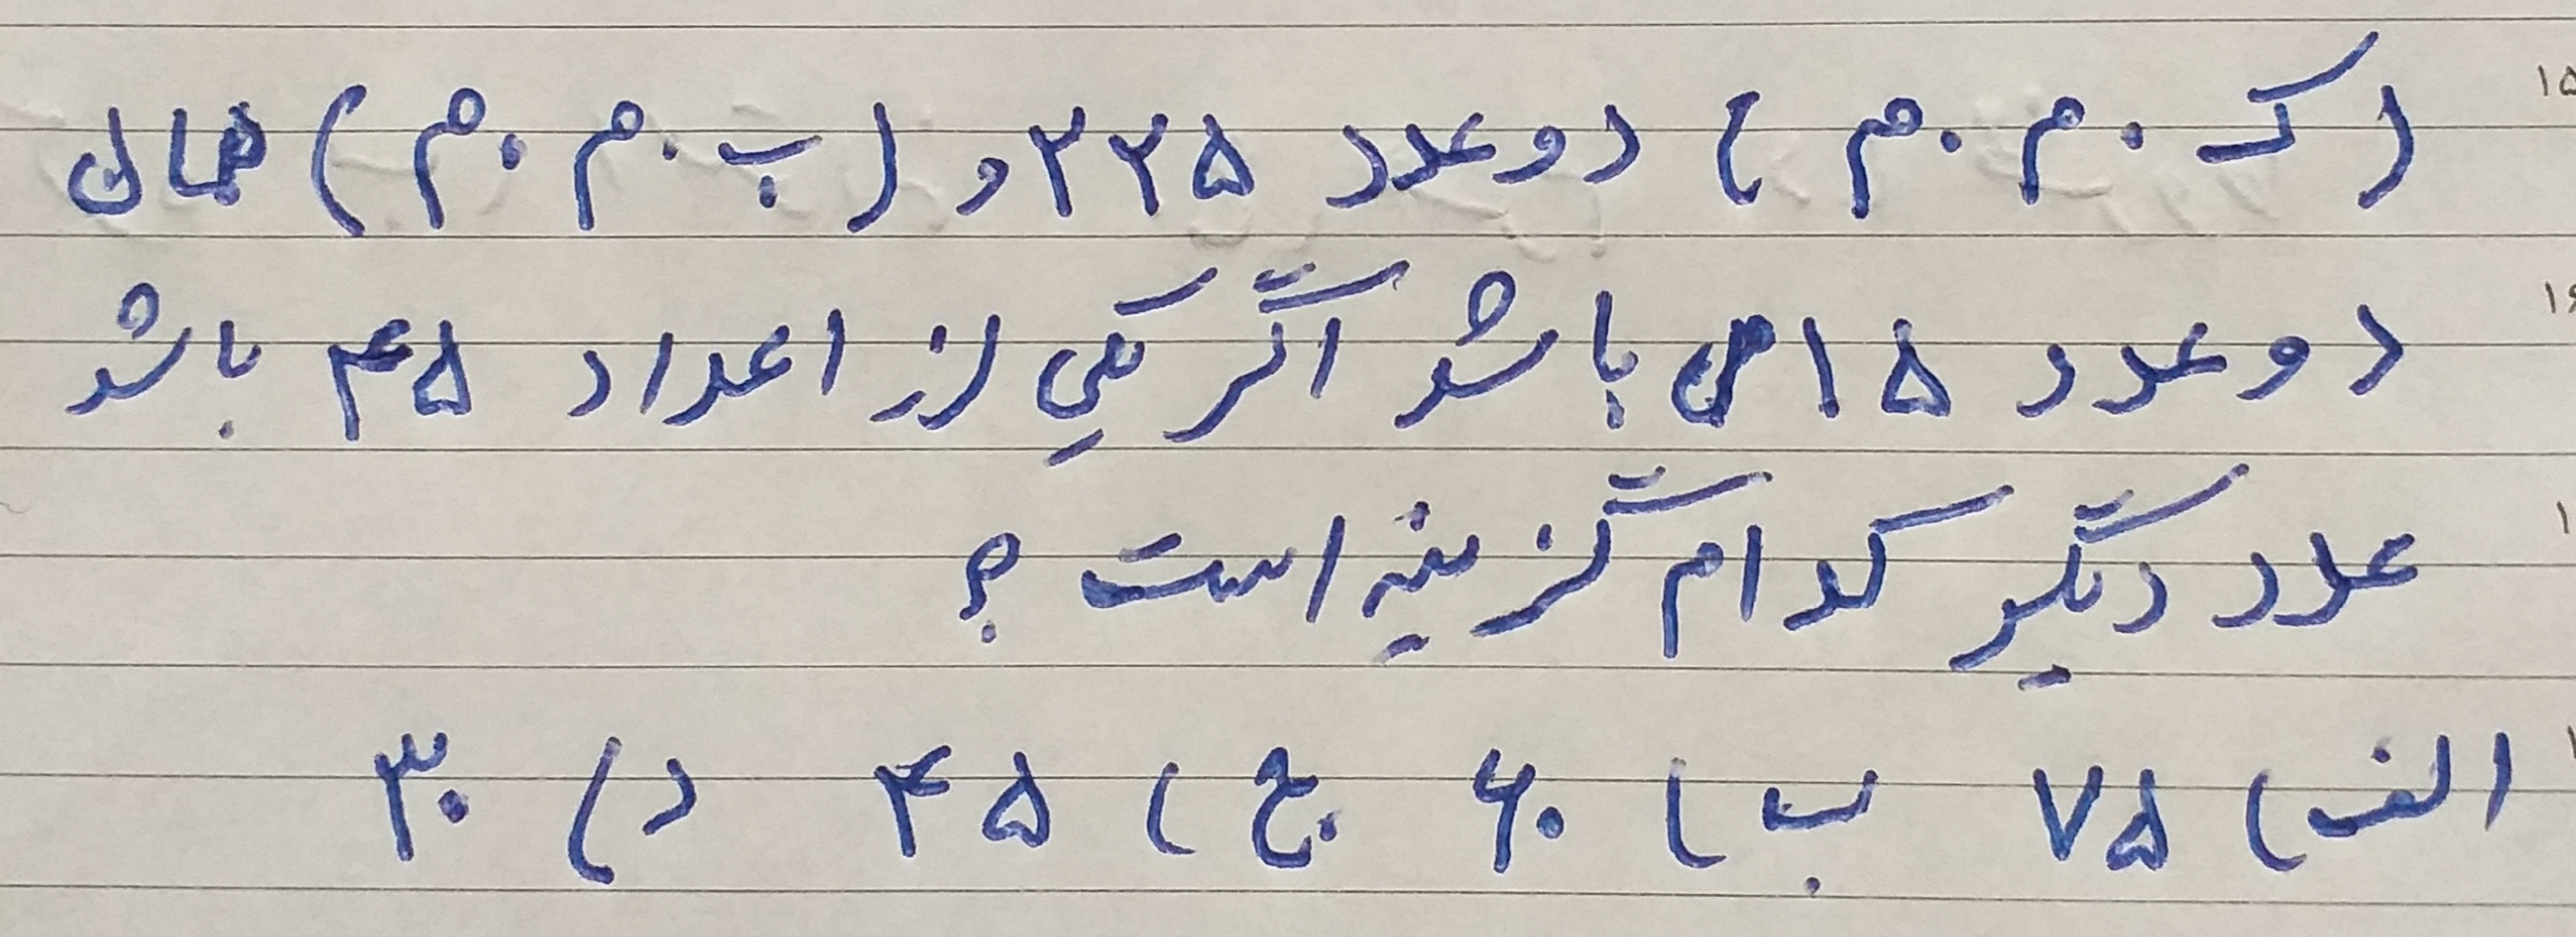 (ک.م.م) دو عدد ۲۲۵ و (ب.م.م) همان
دو عدد ۱۵ می باشد اگر یکی از اعداد ۴۵ باشد
عدد دیگر کدام گزینه است؟
الف) ۷۵ ب) ۶۰ ج) ۴۵ د) ۳۰